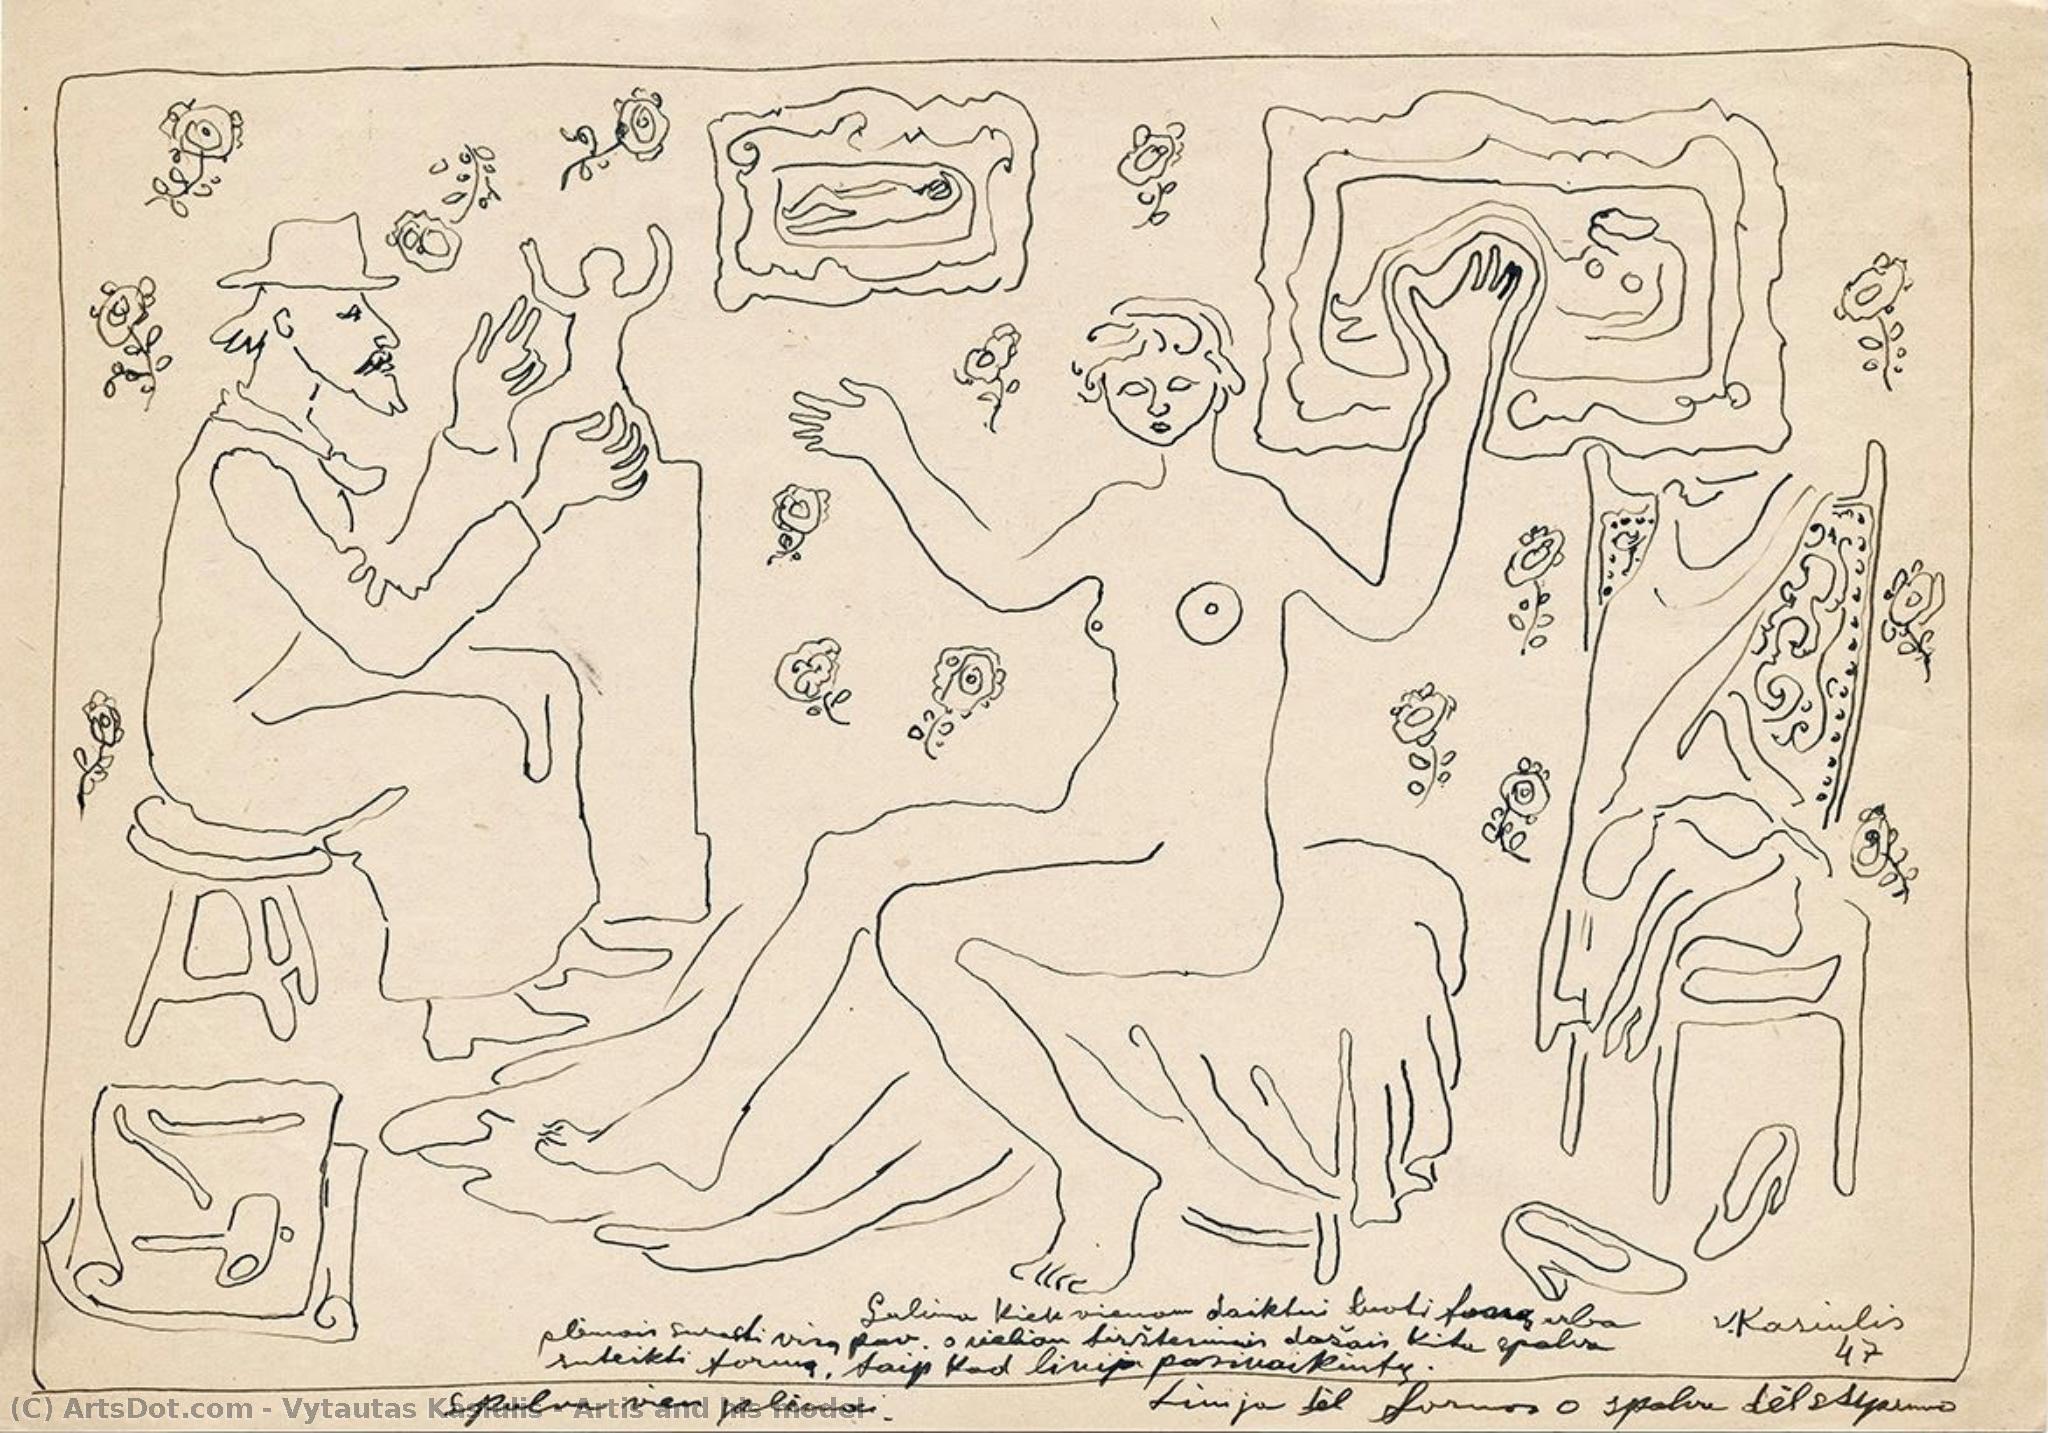 Galima kiekvienam daiktui duoti formą arba
plėmais surasti visą pav. o vėliau tirštesniais dažais kita spalva
suteikti formą, taip kad linija pasinaikintų.
v.Kasiulis
47
Spalva vien plėmai.
Linija dėl formos o spalva dėl
(C) ArtsDot.com - Vytautas Kasiulis - Artis and his model